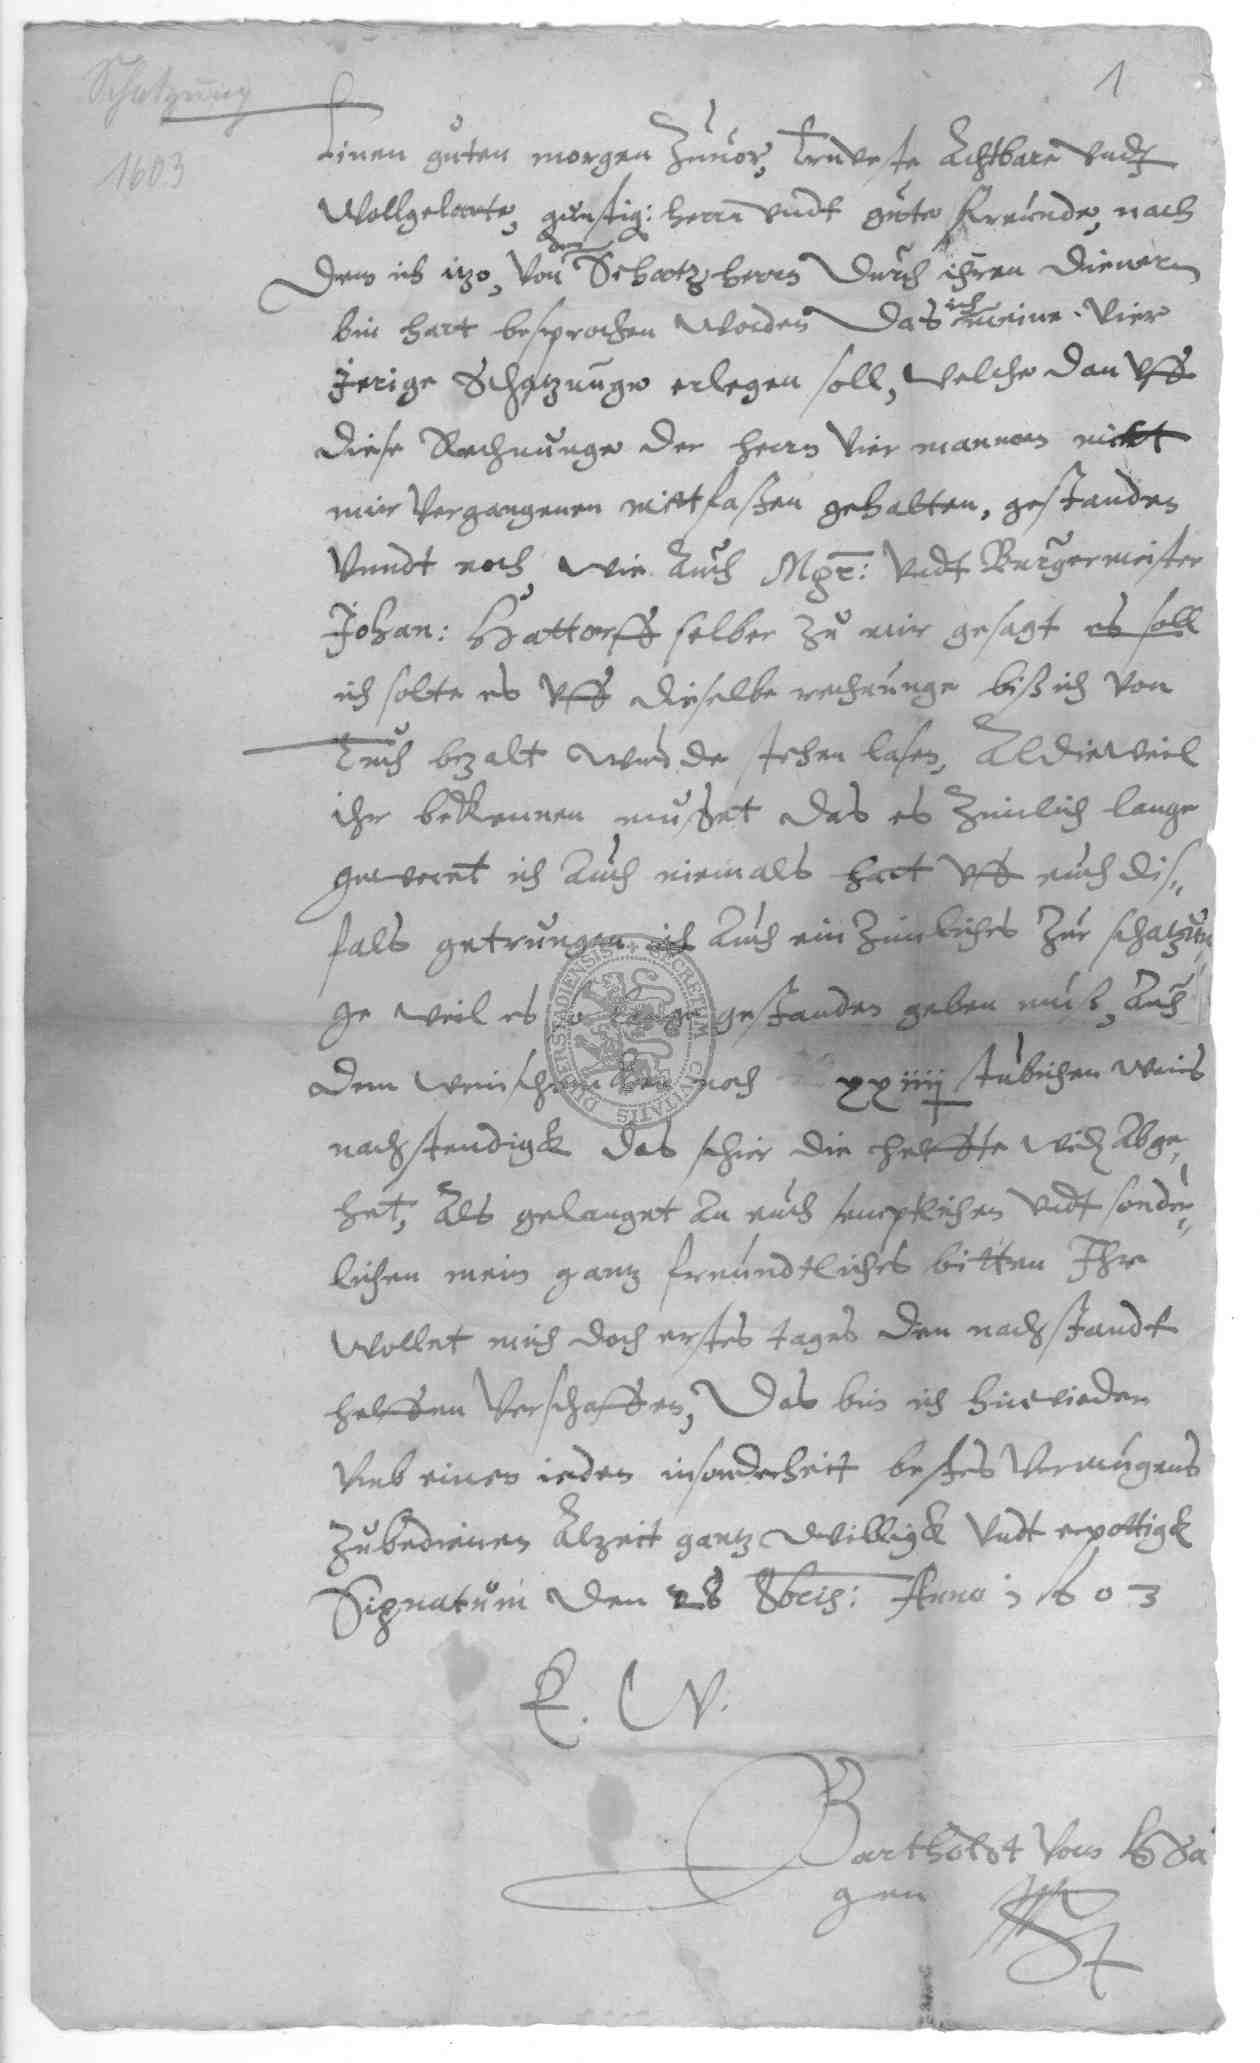 Schatzung
1603
1
Einen guten morgen Zuuor, Ernveste Achtbare vndt
Wollgelarte, gunstig: herrn vndt gute Freunde, nach
dem ich itzo, von den Schatzhern durch ihren dienern
bin hart besprochen worden das ich meine vier
Jerige Schatzunge erlegen soll, welche dan vff
diese Rechnunge der hern vier mannen nicht
mir vergangenen mittfasten gehalten, gestanden
vnndt noch, wie auch Mgr: vndt Burgermeister
Johan: Hattorff selber zu mir gesagt es soll
ich solte es vff dieselbe rechnunge biß ich von
Euch bezalt wurde stehen lasen, Aldieweil
ihr bekennen musset das es zimlich lange
gewerett ich auch niemals hart vff euch dis„
fals getrungen, ich auch ein zimliches zur schatzun„
ge weil es so lange gestanden geben muß, Auch
dem weinschencken noch xxiiij stubichen weins
nachstendigk das schier die helffte wid abge„
het, Als gelanget an euch semptlichen vndt sonder„
lichen mein gantz freundtliches bitten Ihr
wollet mich doch erstes tages den nachstandt
helffen verschaffen, Das bin ich hinwieder
vmb einen ieden insonderheit bestes vermugens
zubedienen alzeit gantz willigk vndt erpottigk
Signatum den 28 8bris: Anno 1603
E. W.
Barthold von Ha
gen
DUDERSTADIENSIS SECRETUM CIVITATIS